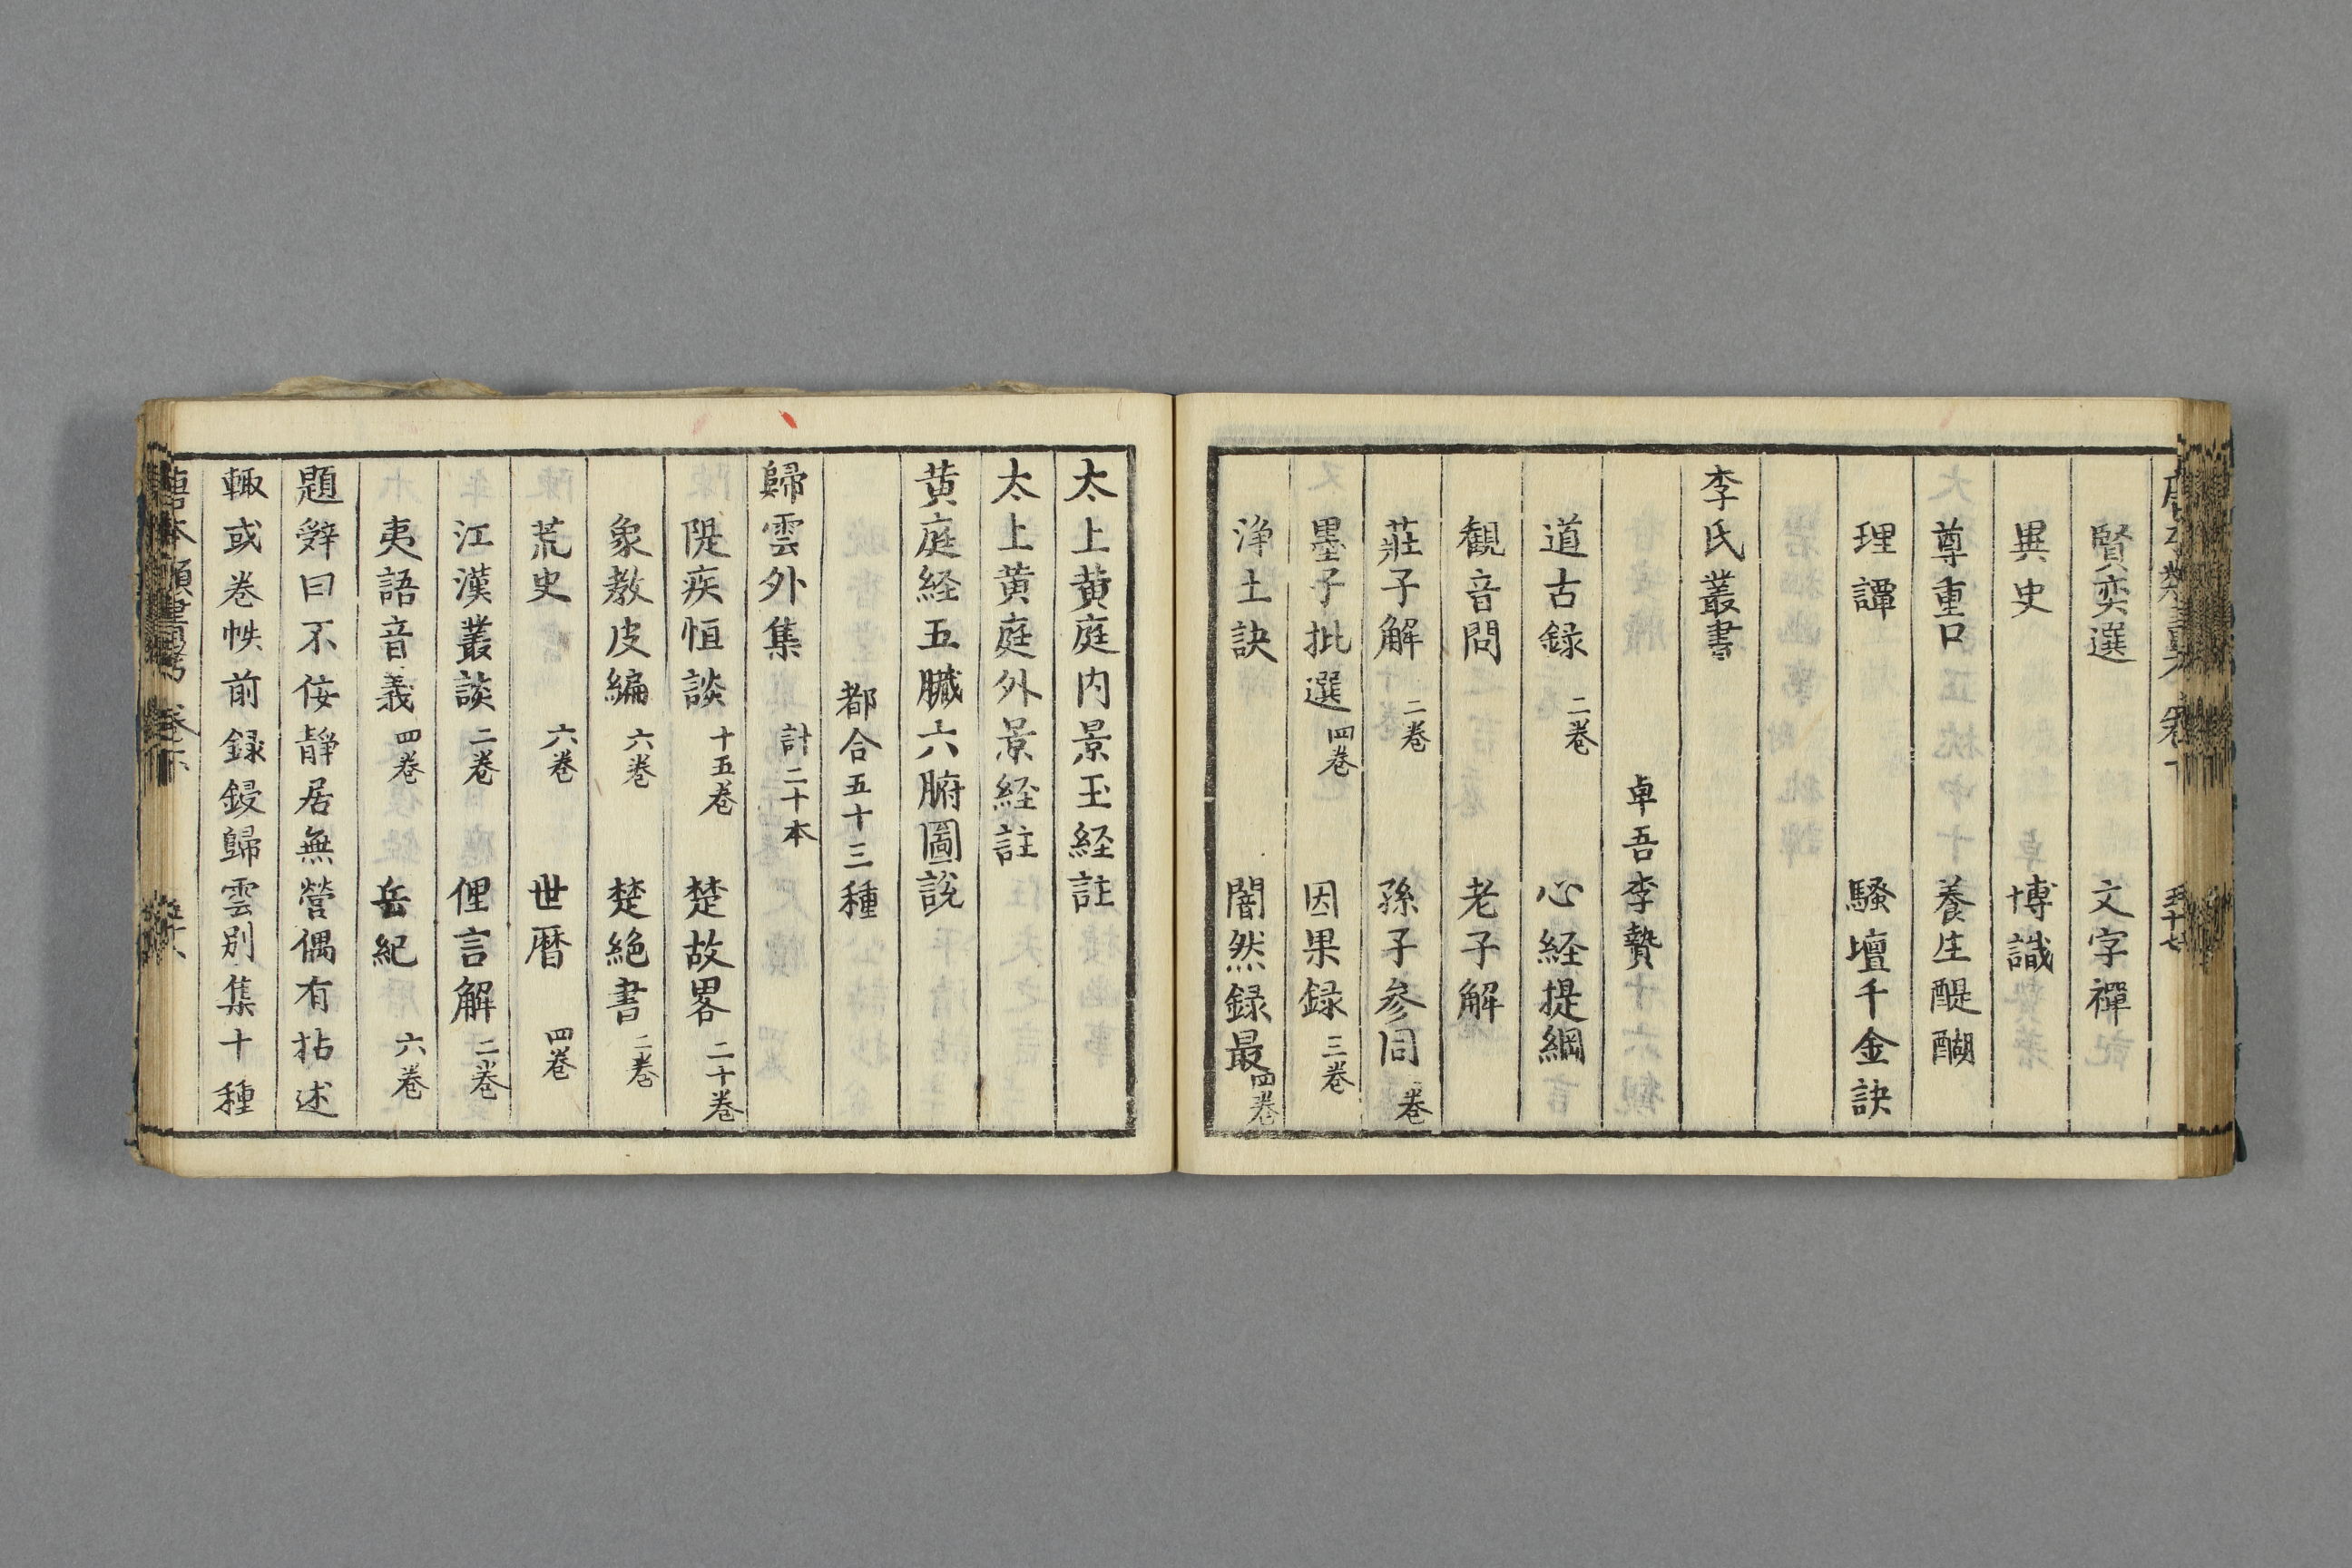 賢奕選 文字禪
異史 博識
尊重口 養生醍醐
理譚 騷壇千金訣
李氏叢書
卓吾李贄
道古録 二卷 心経提綱
観音問 老子解
莊子解 二卷 孫子参同 卷
墨子批選 四卷 因果録 三卷
浄土訣 闇然録最 四卷
太上黄庭内景玉経註
太上黄庭外景経註
黄庭経五臓六腑圖説
都合五十三種
歸雲外集 計二十本
隄疾恒談 十五卷 楚故畧 二十卷
象教皮編 六卷 楚絶書 二卷
荒史 六卷 世暦 四卷
江漢叢談 二卷 俚言解 二卷
夷語音義 四卷 岳紀 六卷
題辤曰不佞靜居無營偶有拈述
輙或卷帙前録鋟歸雲別集十種
唐本類書考 卷下